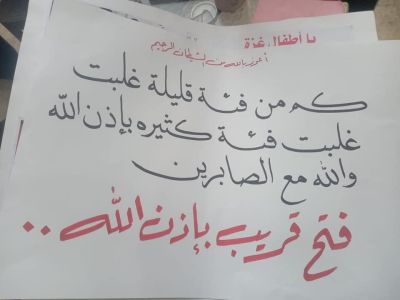 يا أطفال غزة
أعوذ بالله من الشيطان الرجيم
كم من فئة قليلة غلبت
غلبت فئة كثيره بإذن الله
والله مع الصابرين
فتح قريب بإذن الله ..